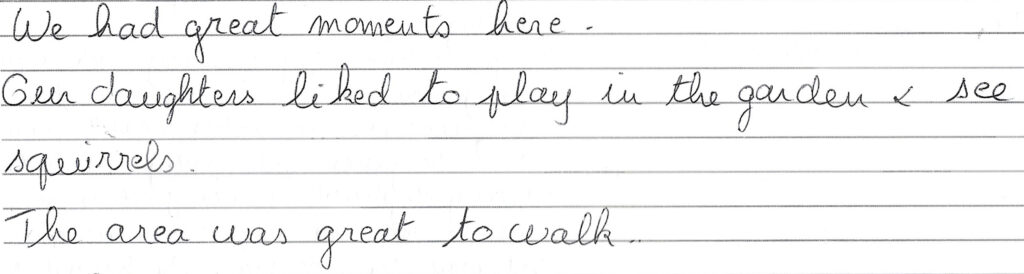 We had great moments here.
Our daughters liked to play in the garden & see
squirrels.
The area was great to walk..